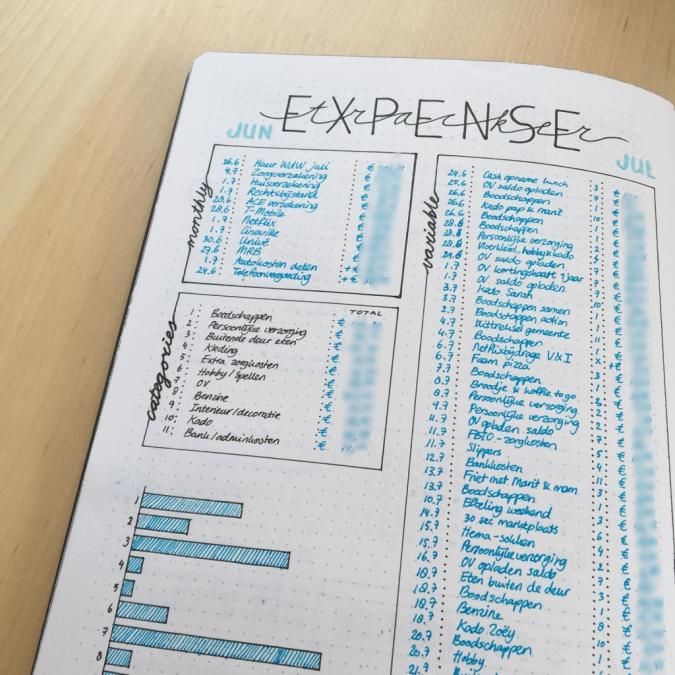 EXPENSE
tracker
JUN
JUL
monthly
26.6 : Huur W&W juli : €
4.7 : Zorgverzekering : €
1.7 : Huisverzekering : €
1.7 : Rechtsbijstand : €
28.6 : ACE verzekering : €
28.6 : T-Mobile : €
1.7 : Netflix : €
1.7 : Cineville : €
30.6 : Univé : €
27.6 : MRB : €
1.7 : Autokosten delen : +€
24.6 : Telefoonvergoeding : +€
categories
TOTAL
1 : Boodschappen : €
2 : Persoonlijke verzorging : €
3 : Buitende deur eten : €
4 : Kleding : €
5 : Extra zorgkosten : €
6 : Hobby/spellen : €
7 : OV : €
8 : Benzine : €
9 : Interieur/decoratie : €
10 : Kado : €
11 : Bank/adminkosten : €
1
2
3
4
5
6
7
8
variable
24.6 : Cash opname lunch : 3 : €
25.6 : OV saldo opladen : 7 : €
26.6 : Boodschappen
26.6 : Kado pap & marit
26.6 : Boodschappen
28.6 : Boodschappen
Persoonlijke verzorging
Voorkled. hobby & kado
OV saldo opladen
1.7 : OV kortingskaart 1 jaar
OV saldo opladen
3.7 : Kado Sarah
3.7 : Boodschappen samen
2.7 : Boodschappen action
4.7 : Uittreksel gemeente
4.7 : Boodschappen
6.7 : Netflixbijdrage V & I : +€
6.7 : Foam pizza
7.7 : Boodschappen
8.7 : Broodje & koffie to go
8.7 : Persoonlijke verzorging
Persoonlijke verzorging
OV opladen saldo
11.7 : FBTO - zorgkosten
11.7 : Slippers
12.7 : Bankkosten
13.7 : Friet met Marit & mam
13.7 : Boodschappen
10.7 : Efteling weekend
14.7 : 30 sec marktplaats
15.7 : Hema - sokken
15.7 : Persoonlijke verzorging
16.7 : OV opladen saldo
18.7 : Eten buiten de deur
18.7 : Boodschappen
18.7 : Benzine
18.7 : Kado Zoëy
20.7 : Boodschappen
20.7 : Hobby
21.7